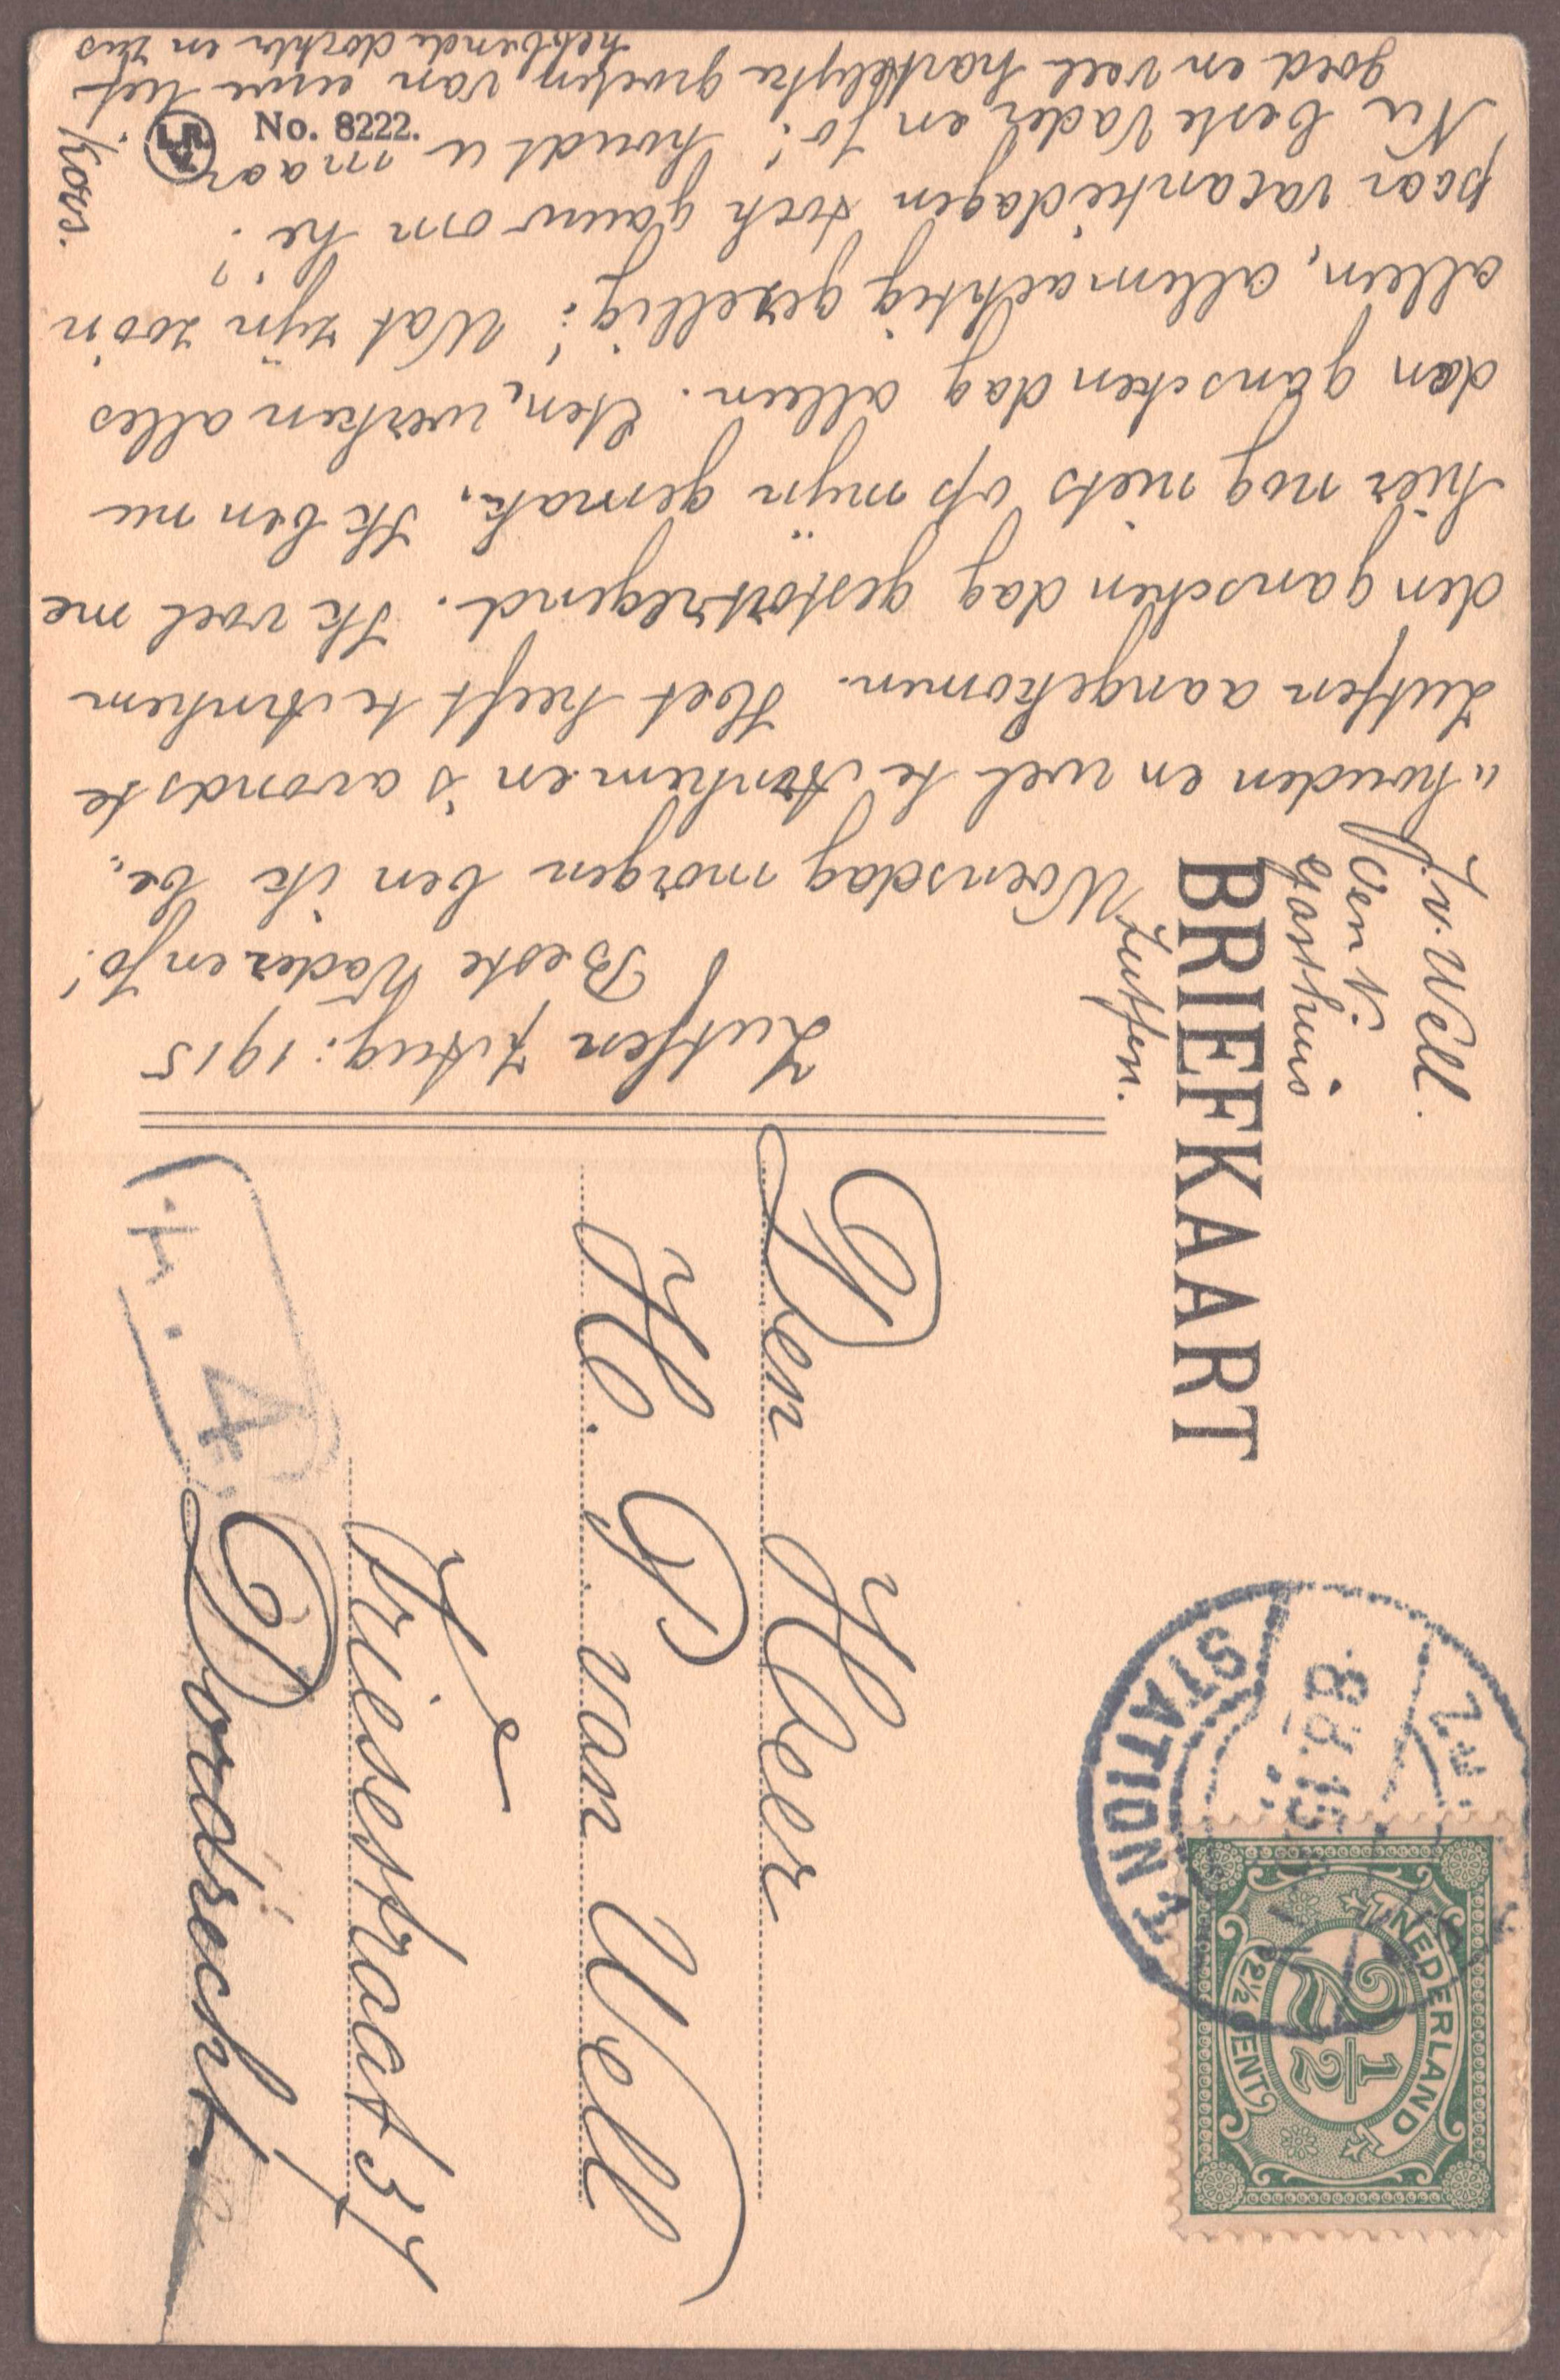 BRIEFKAART
J. v. Well.
Oen N.
Gasthuis
Zutfen.
Zutfen 7 Aug: 1915
Beste Vader en Jo!
Woensdag morgen ben ik be„
„houden en wel te Arnhem en 's avonds te
Zutfen aangekomen. Het heeft te Arnhem
den ganschen dag gestortregend. Ik voel me
hier nog niets op mijn gemak. Ik ben nu
den ganschen dag alleen. Eten, werken alles
alleen, allemachtig gezellig! Wat zijn zoo'n
paar vacantiedagen toch gauw om hè?
Nu beste Vader en Jo! houdt u maar
goed en veel hartelijke groeten van uwe lief„
hebbende dochter en zus
Kors.
L.R.
V.
No. 8222.
Den Heer
H. P. van Well
Vriesestraat 37
Dordrecht
4.
STATION
8.8.15
NEDERLAND
2½
2½ CENT